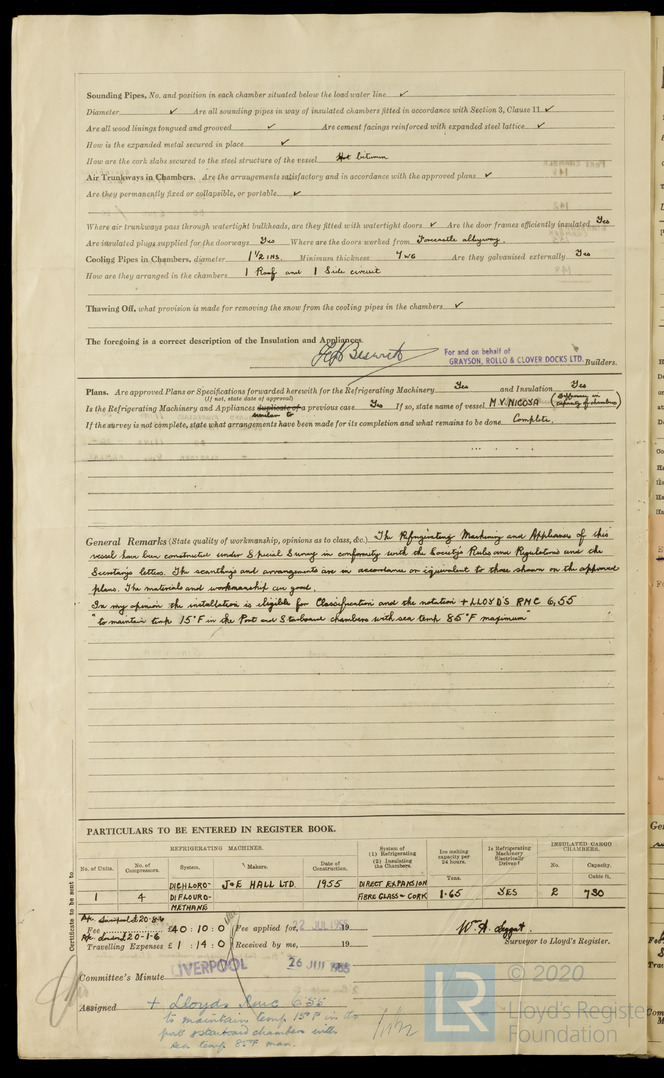 Sounding Pipes, No. and position in each chamber situated below the load water line ✓
Diameter ✓ Are all sounding pipes in way of insulated chambers fitted in accordance with Section 3, Clause 11 ✓
Are all wood linings tongued and grooved ✓ Are cement facings reinforced with expanded steel lattice ✓
How is the expanded metal secured in place ✓
How are the cork slabs secured to the steel structure of the vessel Hot bitumen
Air Trunkways in Chambers. Are the arrangements satisfactory and in accordance with the approved plans ✓
Are they permanently fixed or collapsible, or portable ✓
Where air trunkways pass through watertight bulkheads, are they fitted with watertight doors ✓ Are the door frames efficiently insulated Yes
Are insulated plugs supplied for the doorways Yes Where are the doors worked from Forecastle alleyway.
Cooling Pipes in Chambers, diameter 1 1/2 INS. Minimum thickness 7 WG Are they galvanised externally Yes
How are they arranged in the chambers 1 Roof and 1 Side circuit
Thawing Off, what provision is made for removing the snow from the cooling pipes in the chambers ✓
The foregoing is a correct description of the Insulation and Appliances.
For and on behalf of
GRAYSON, ROLLO & CLOVER DOCKS LTD. Builders.
Plans. Are approved Plans or Specifications forwarded herewith for the Refrigerating Machinery Yes and Insulation Yes
(If not, state date of approval)
Is the Refrigerating Machinery and Appliances duplicate of a previous case Yes If so, state name of vessel M.V. NICOYA (differing in capacity of chambers)
similar to
If the survey is not complete, state what arrangements have been made for its completion and what remains to be done Complete.
General Remarks (State quality of workmanship, opinions as to class, &c.) The Refrigerating Machinery and Appliances of this
vessel have been constructed under Special Survey in conformity with the Society's Rules and Regulations and the
Secretary's letters. The scantlings and arrangements are in accordance or equivalent to those shown on the approved
plans. The materials and workmanship are good.
In my opinion the installation is eligible for Classification and the notation + LLOYD'S RMC 6,55
"to maintain temp 15°F in the Port and Starboard chambers with sea temp 85°F maximum"
PARTICULARS TO BE ENTERED IN REGISTER BOOK.
REFRIGERATING MACHINES.
No. of Units. No. of Compressors. System. Makers. Date of Construction. System of (1) Refrigerating (2) Insulating the Chambers. Ice melting capacity per 24 hours. Is Refrigerating Machinery Electrically Driven? INSULATED CARGO CHAMBERS. No. Capacity.
Tons. Cubic ft.
1 4 DICHLORO-DIFLOURO-METHANE J & E HALL LTD. 1955 DIRECT EXPANSION FIBRE GLASS & CORK 1·65 YES 2 730
Certificate to be sent to
Fee £40 : 10 : 0 Fee applied for, 22 JUL 1955 19
Travelling Expenses £1 : 14 : 0 Received by me, 19
Surveyor to Lloyd's Register.
Committee's Minute LIVERPOOL
Assigned + Lloyds RMC 6.55
to maintain temp 15°F in the
port & starboard chambers with
sea temp 85°F max.
LR
© 2020
Lloyd's Register
Foundation